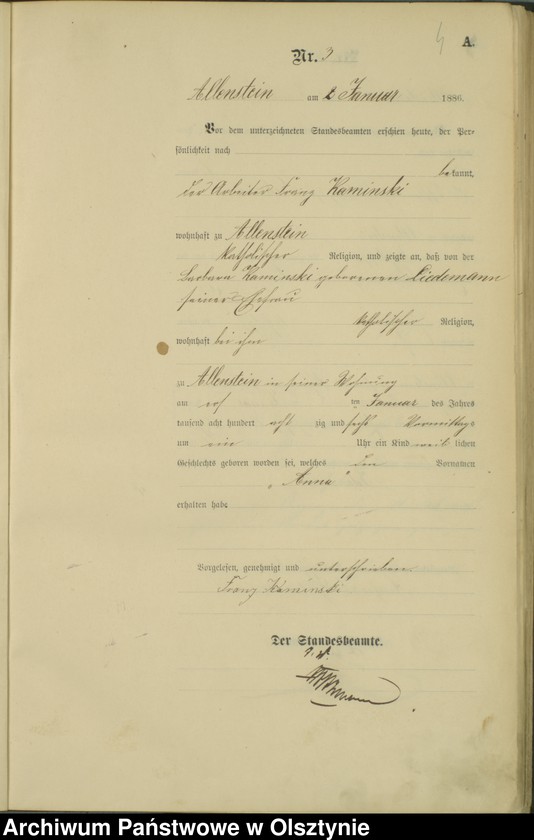 4
A.
Nr. 3
Allenstein am 2 Januar 1886.
Vor dem unterzeichneten Standesbeamten erschien heute, der Per-
sönlichkeit nach
bekannt,
der Arbeiter Franz Kaminski
wohnhaft zu Allenstein
katholischer Religion, und zeigte an, daß von der
Barbara Kaminski geborenen Liedemann
seiner Ehefrau
katholischer Religion,
wohnhaft bei ihm
zu Allenstein in seiner Wohnung
am ten Januar des Jahres
tausend acht hundert acht zig und sechs Vormittags
um ein Uhr ein Kind weib lichen
Geschlechts geboren worden sei, welches den Vornamen
„Anna"
erhalten habe
Vorgelesen, genehmigt und unterschrieben
Franz Kaminski
Der Standesbeamte.
Archiwum Państwowe w Olsztynie